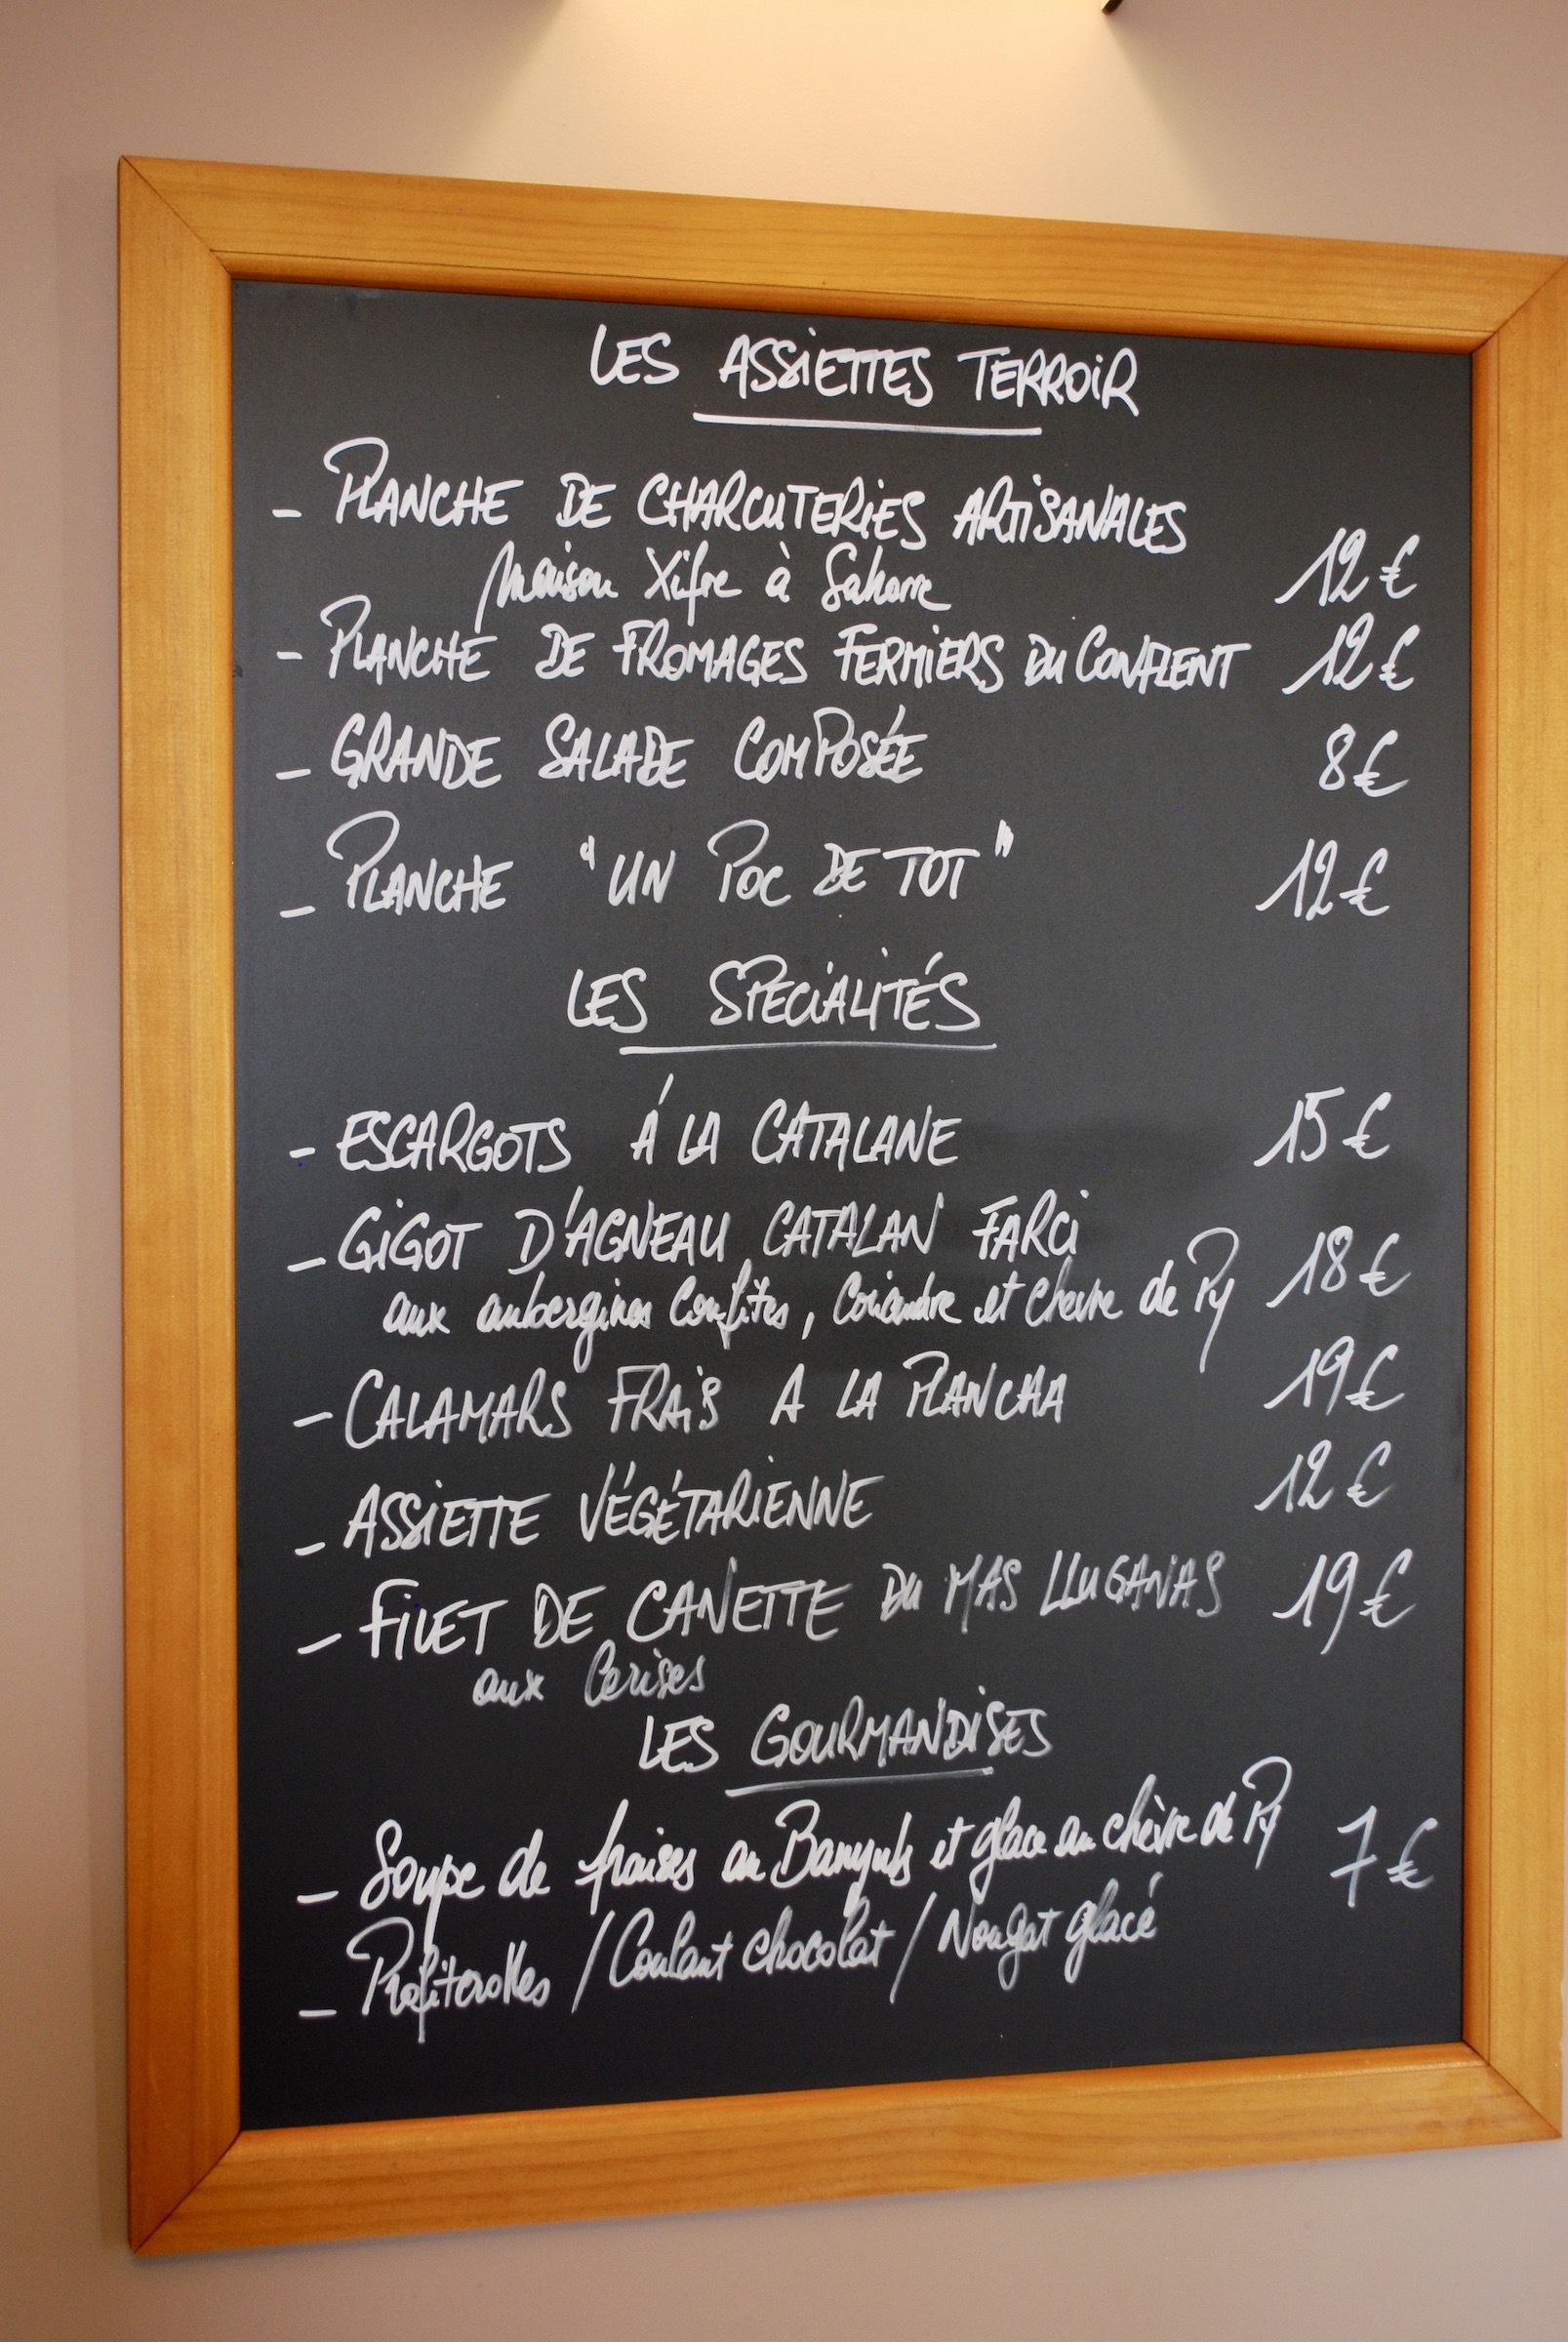 LES ASSIETTES TERROIR
- PLANCHE DE CHARCUTERIES ARTISANALES
Maison Xifre à Sahorre 12€
- PLANCHE DE FROMAGES FERMIERS DU CONFLENT 12€
- GRANDE SALADE COMPOSÉE 8€
- PLANCHE "UN POC DE TOT" 12€
LES SPECIALITÉS
- ESCARGOTS Á LA CATALANE 15€
- GIGOT D'AGNEAU CATALAN FARCI
aux aubergines confites, coriandre et chevre de Py 18€
- CALAMARS FRAIS A LA PLANCHA 19€
- ASSIETTE VÉGÉTARIENNE 12€
- FILET DE CANETTE DU MAS LLUGANAS 19€
aux Cerises
LES GOURMANDISES
- Soupe de fraises au Banyuls et glace au chèvre de Py 7€
- Profiterolles / Coulant chocolat / Nougat glacé